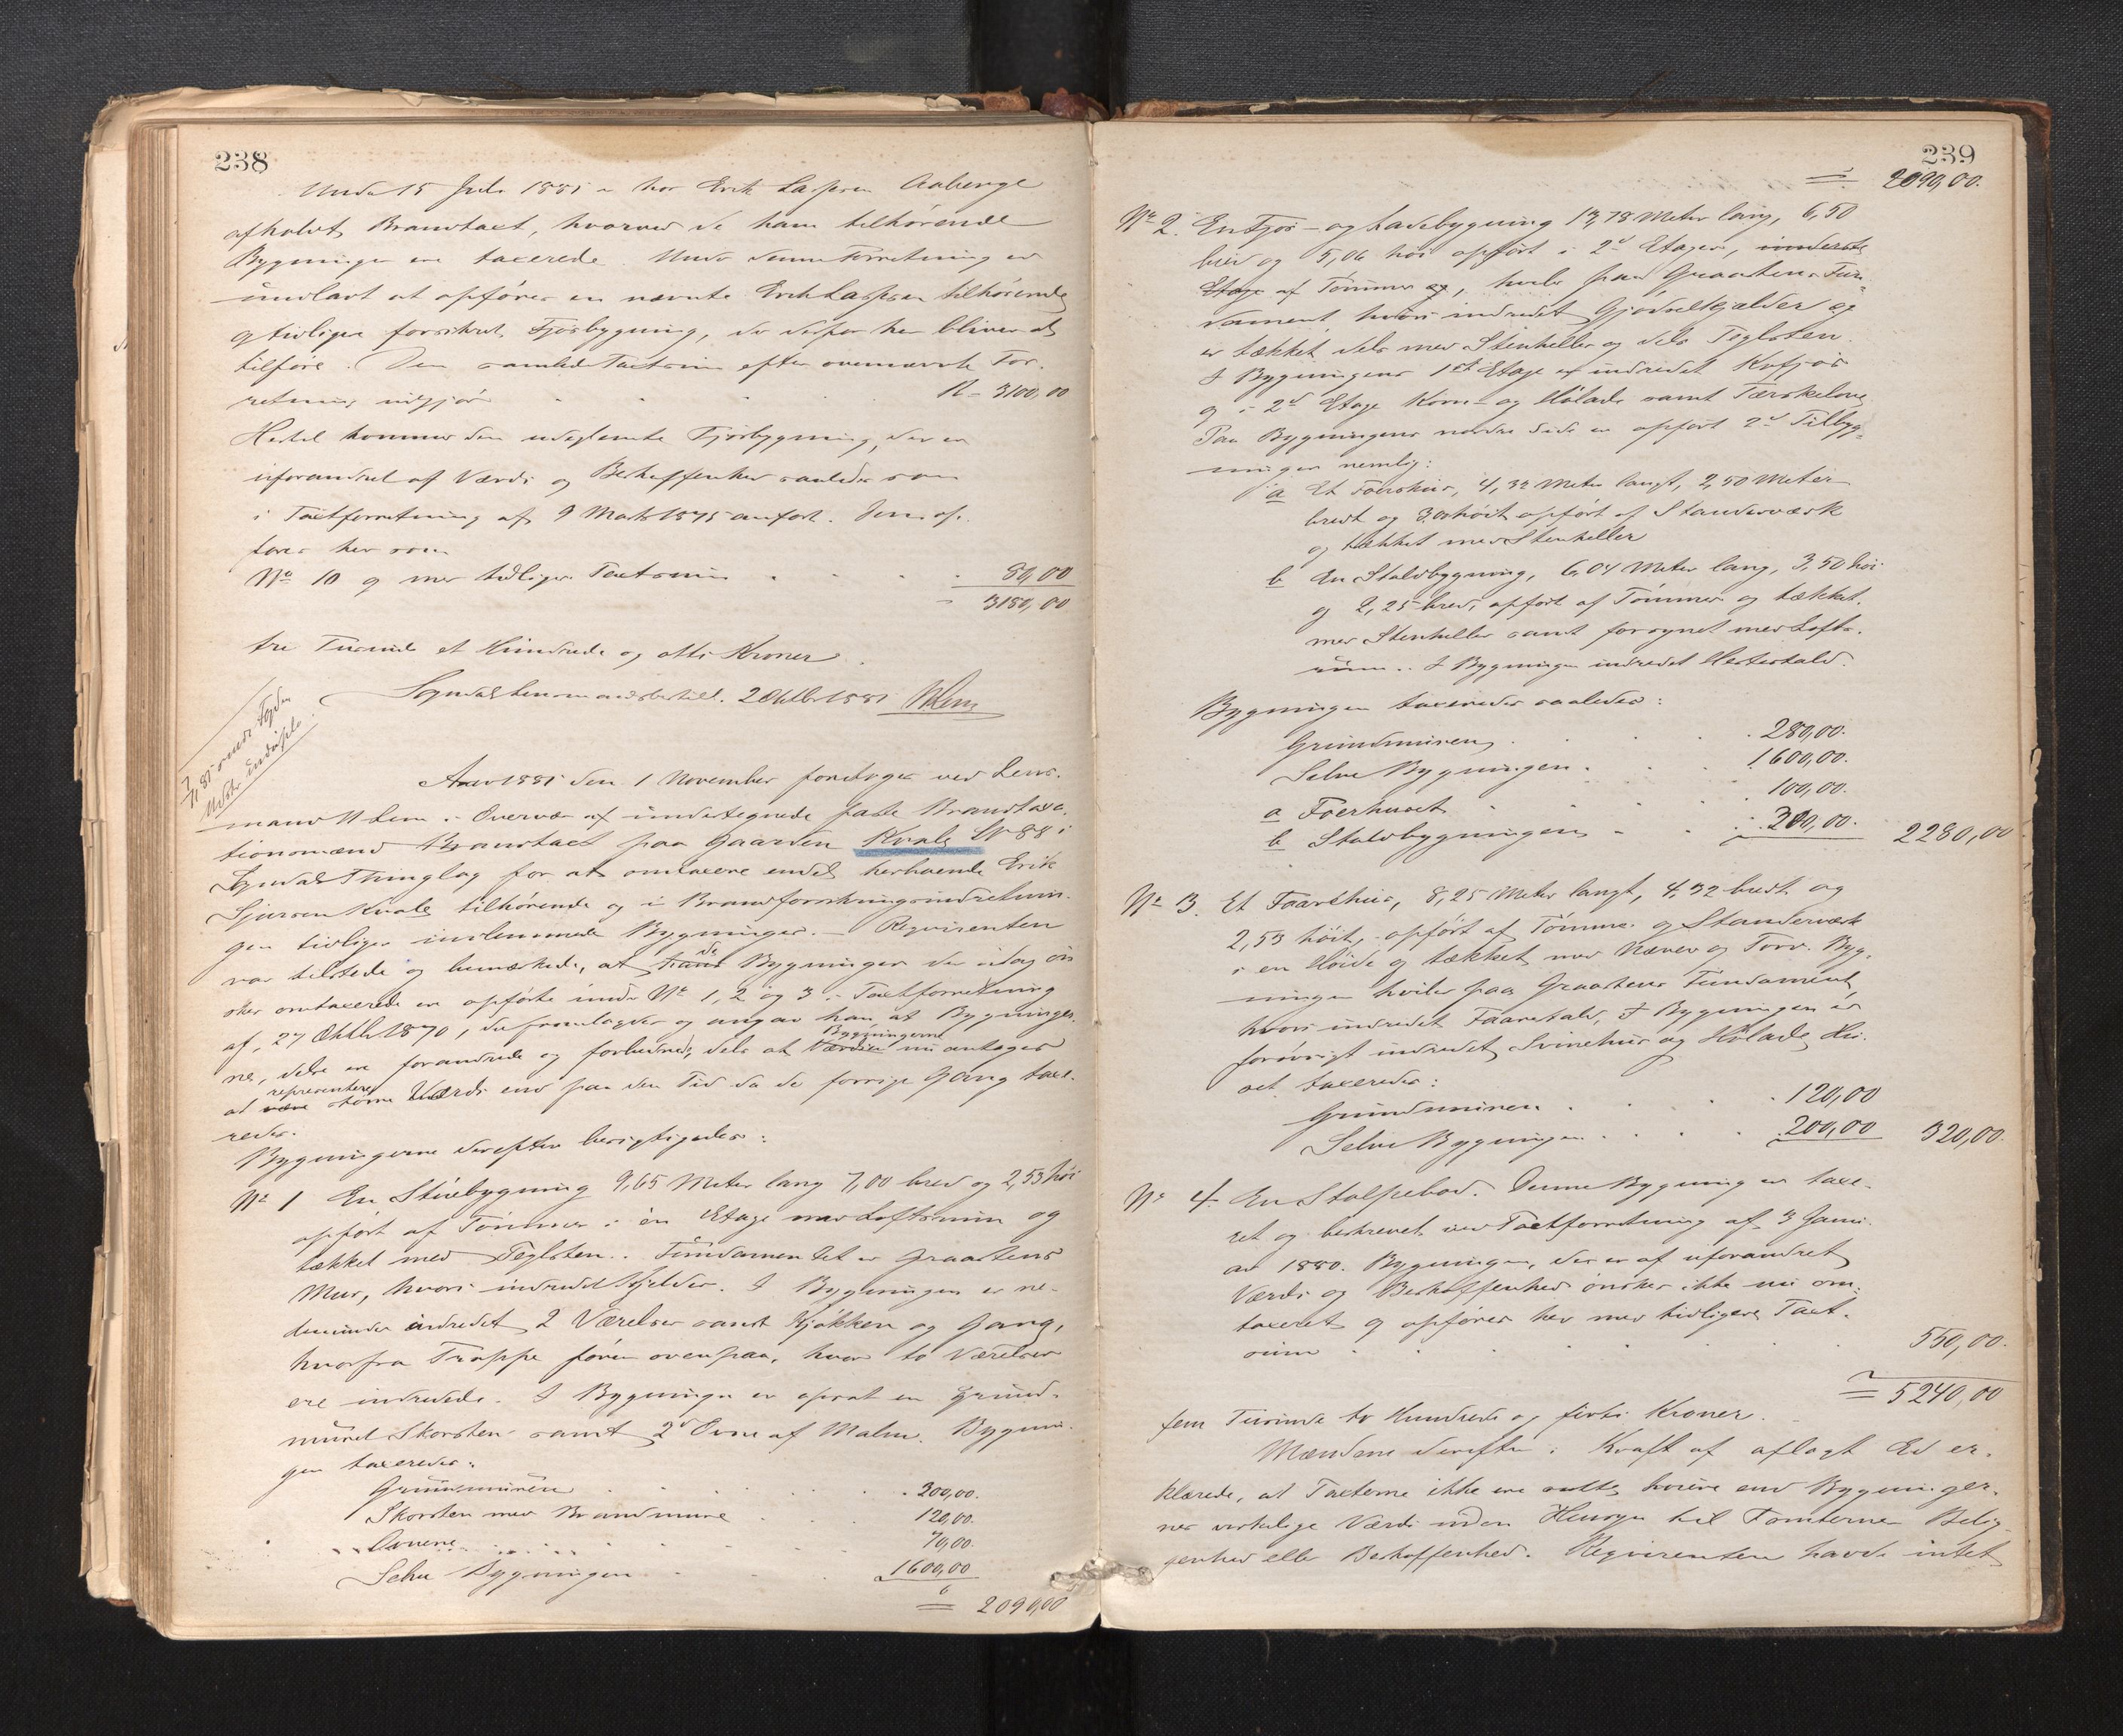 238
Under 15 Juli 1881 er hos Erik Larsen Aaberge
afholdt Brandtaxt, hvorved de ham tilhørende
Bygninger ere taxerede. Under denne Forretning er
undladt at opføres en nævnte Erik Larsen tilhørende
og tidligere forsikret Fjøsbygning, der derfor her bliver at
tilføre. Den samlede Taxtsum efter ovennævnte For-
retning udgjør K - 3100,00
Hertil kommer den udeglemte Fjøsbygning, der er
uforandret af Værdi og Beskaffenhed saaledes som
i Taxtforretning af 9 Marts 1875 anført. Den op-
føres her som
No 10 og med tidligere Taxtsum 80,00
3180,00
tre Tusinde et Hundrede og otti Kroner.
Sogndals Lensmandsbestill. 2 Oktbr 1881 MLem
Aar 1881 den 1 November foretoges ved Lens-
mand M Lem i Overvær af undertegnede faste Brandtaxa-
tionsmænd Brandtaxt paa Gaarden Kvale LN 88 i
Sogndals Thinglag for at omtaxere endel herhværende Erik
Sjursen Kvale tilhørende og i Brandforsikringsindretnin-
gen tidligere indlemmede Bygninger. - Reqvirenten
var tilstede og bemærkede, at hans de Bygninger der idag øn-
skes omtaxerede ere opførte under No 1, 2 og 3 i Taxtforretning
af 27 Oktbr 1870, der fremlagdes og angav han at Bygninger-
ne, dels ere forandrede og forbedrede, dels at Værdien Bygningerne nu antages
at være repræsentere større Værdi end paa den Tid da de forrige Gang taxe-
redes.
Bygningerne derefter besigtigedes:
No 1 En Stuebygning 9,65 Meter lang 7,00 bred og 2,53 høi
opført af Tømmer i en Etage med Loftsrum og
tækket med Teglsten. Fundamentet er Graastens
Mur, hvori indredet Kjelder. I Bygningen er ne-
denunder indredet 2 Værelser samt Kjøkken og Gang,
hvorfra Trappe fører ovenpaa, hvor to Værelser
ere indredede. I Bygningen er opsat en grund-
muret Skorsten samt 2de Ovne af Malm. Bygnin-
gen taxeredes:
Grundmuren 300,00.
Skorsten med Brandmure 120,00.
Ovnene 70,00.
Selve Bygningen 1600,00
= 2090,00
239
= 2090,00.
No 2. En Fjøs- og Ladebygning 13,78 Meter lang, 6,50
bred og 5,06 høi opført i 2de Etager, underste
Etage af Tømmer og, hviler paa Graastens Fun-
dament hvori indredet Gjødselkjælder og
er tækket dels med Stenheller og dels Teglsten.
I Bygningens 1ste Etage er indredet Kofjøs
og i 2den Etage Korn- og Hølade samt Tærskelove
Paa Bygningens nordre Side er opført 2de Tilbyg-
ninger nemlig:
a Et Foerhus, 4,32 Meter langt, 2,50 Meter
bredt og høit opført af Standerværk
og tækket med Stenheller
b En Staldbygning, 6,04 Meter lang, 3,50 høi
og 2,25 bred, opført af Tømmer og tækket
med Stenheller samt forsynet med Lofts-
rum. I Bygningen indredet Hestestald.
Bygningen taxeredes saaledes:
Grundmuren 280,00.
Selve Bygningen 1600,00.
a Foerhuset 100,00.
b Staldbygningen 300,00. 2280,00
No 3. Et Faarehus, 8,25 Meter langt, 4,32 bredt og
2,53 høit, opført af Tømmer og Standerværk
i en Høide og tækket med Næver og Torv. Byg-
ningen hviler paa Graastens Fundament,
hvori indredet Faarestald, I Bygningen er
forøvrigt indredet Svinehus og Hølade, Hu-
set taxeredes:
Grundmuren 120,00
Selve Bygningen 200,00 320,00.
No 4. En Stolpebod. Denne Bygning er taxe-
ret og beskrevet ved Taxtforretning af 3 Janu-
ar 1880. Bygningen, der er af uforandret
Værdi og Beskaffenhed ønskes ikke nu om-
taxeret og opføres her med tidligere Taxt-
sum 550,00.
= 5240,00
fem Tusinde to Hundrede og firti Kroner.
Mændene derefter i Kraft af aflagt Ed er-
klærede, at Taxterne ikke ere satte høiere end Bygninger-
nes virkelige Værdi uden Hensyn til Tomternes Belig-
genhed eller Beskaffenhed. Reqvirenten havde intet